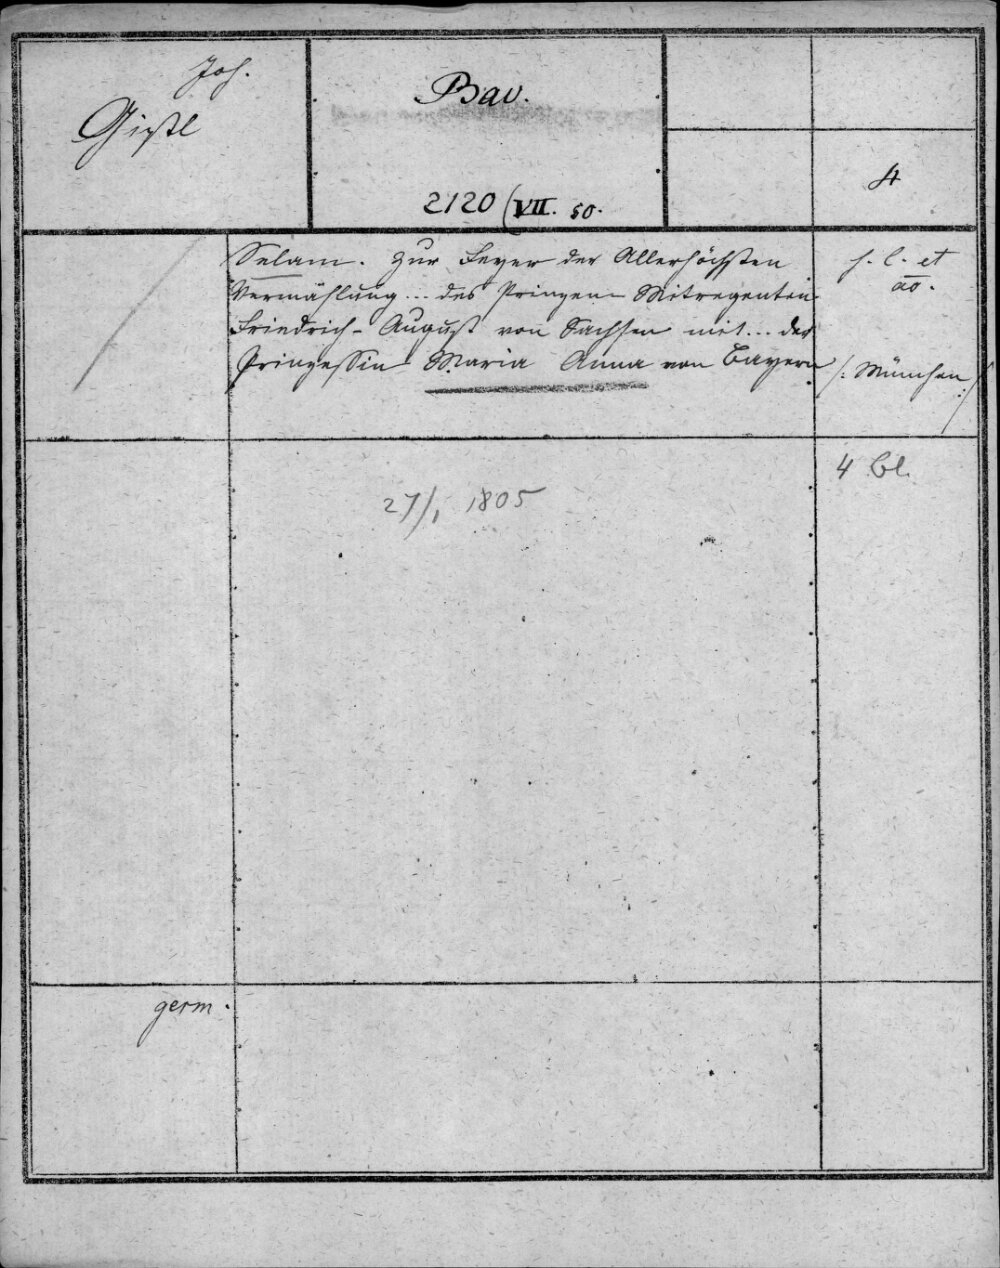 Joh.
Gistl
Bav.
2120 (VII. 50.
4
Selam. Zur Feyer der Allerhöchsten
Vermählung ... des Prinzen Mitregenten
Friedrich-August von Sachsen mit ... der
Prinzessin Maria Anna von Bayern
s. l. et
ao.
/: München :/
27/1 1805
4 bl.
germ.